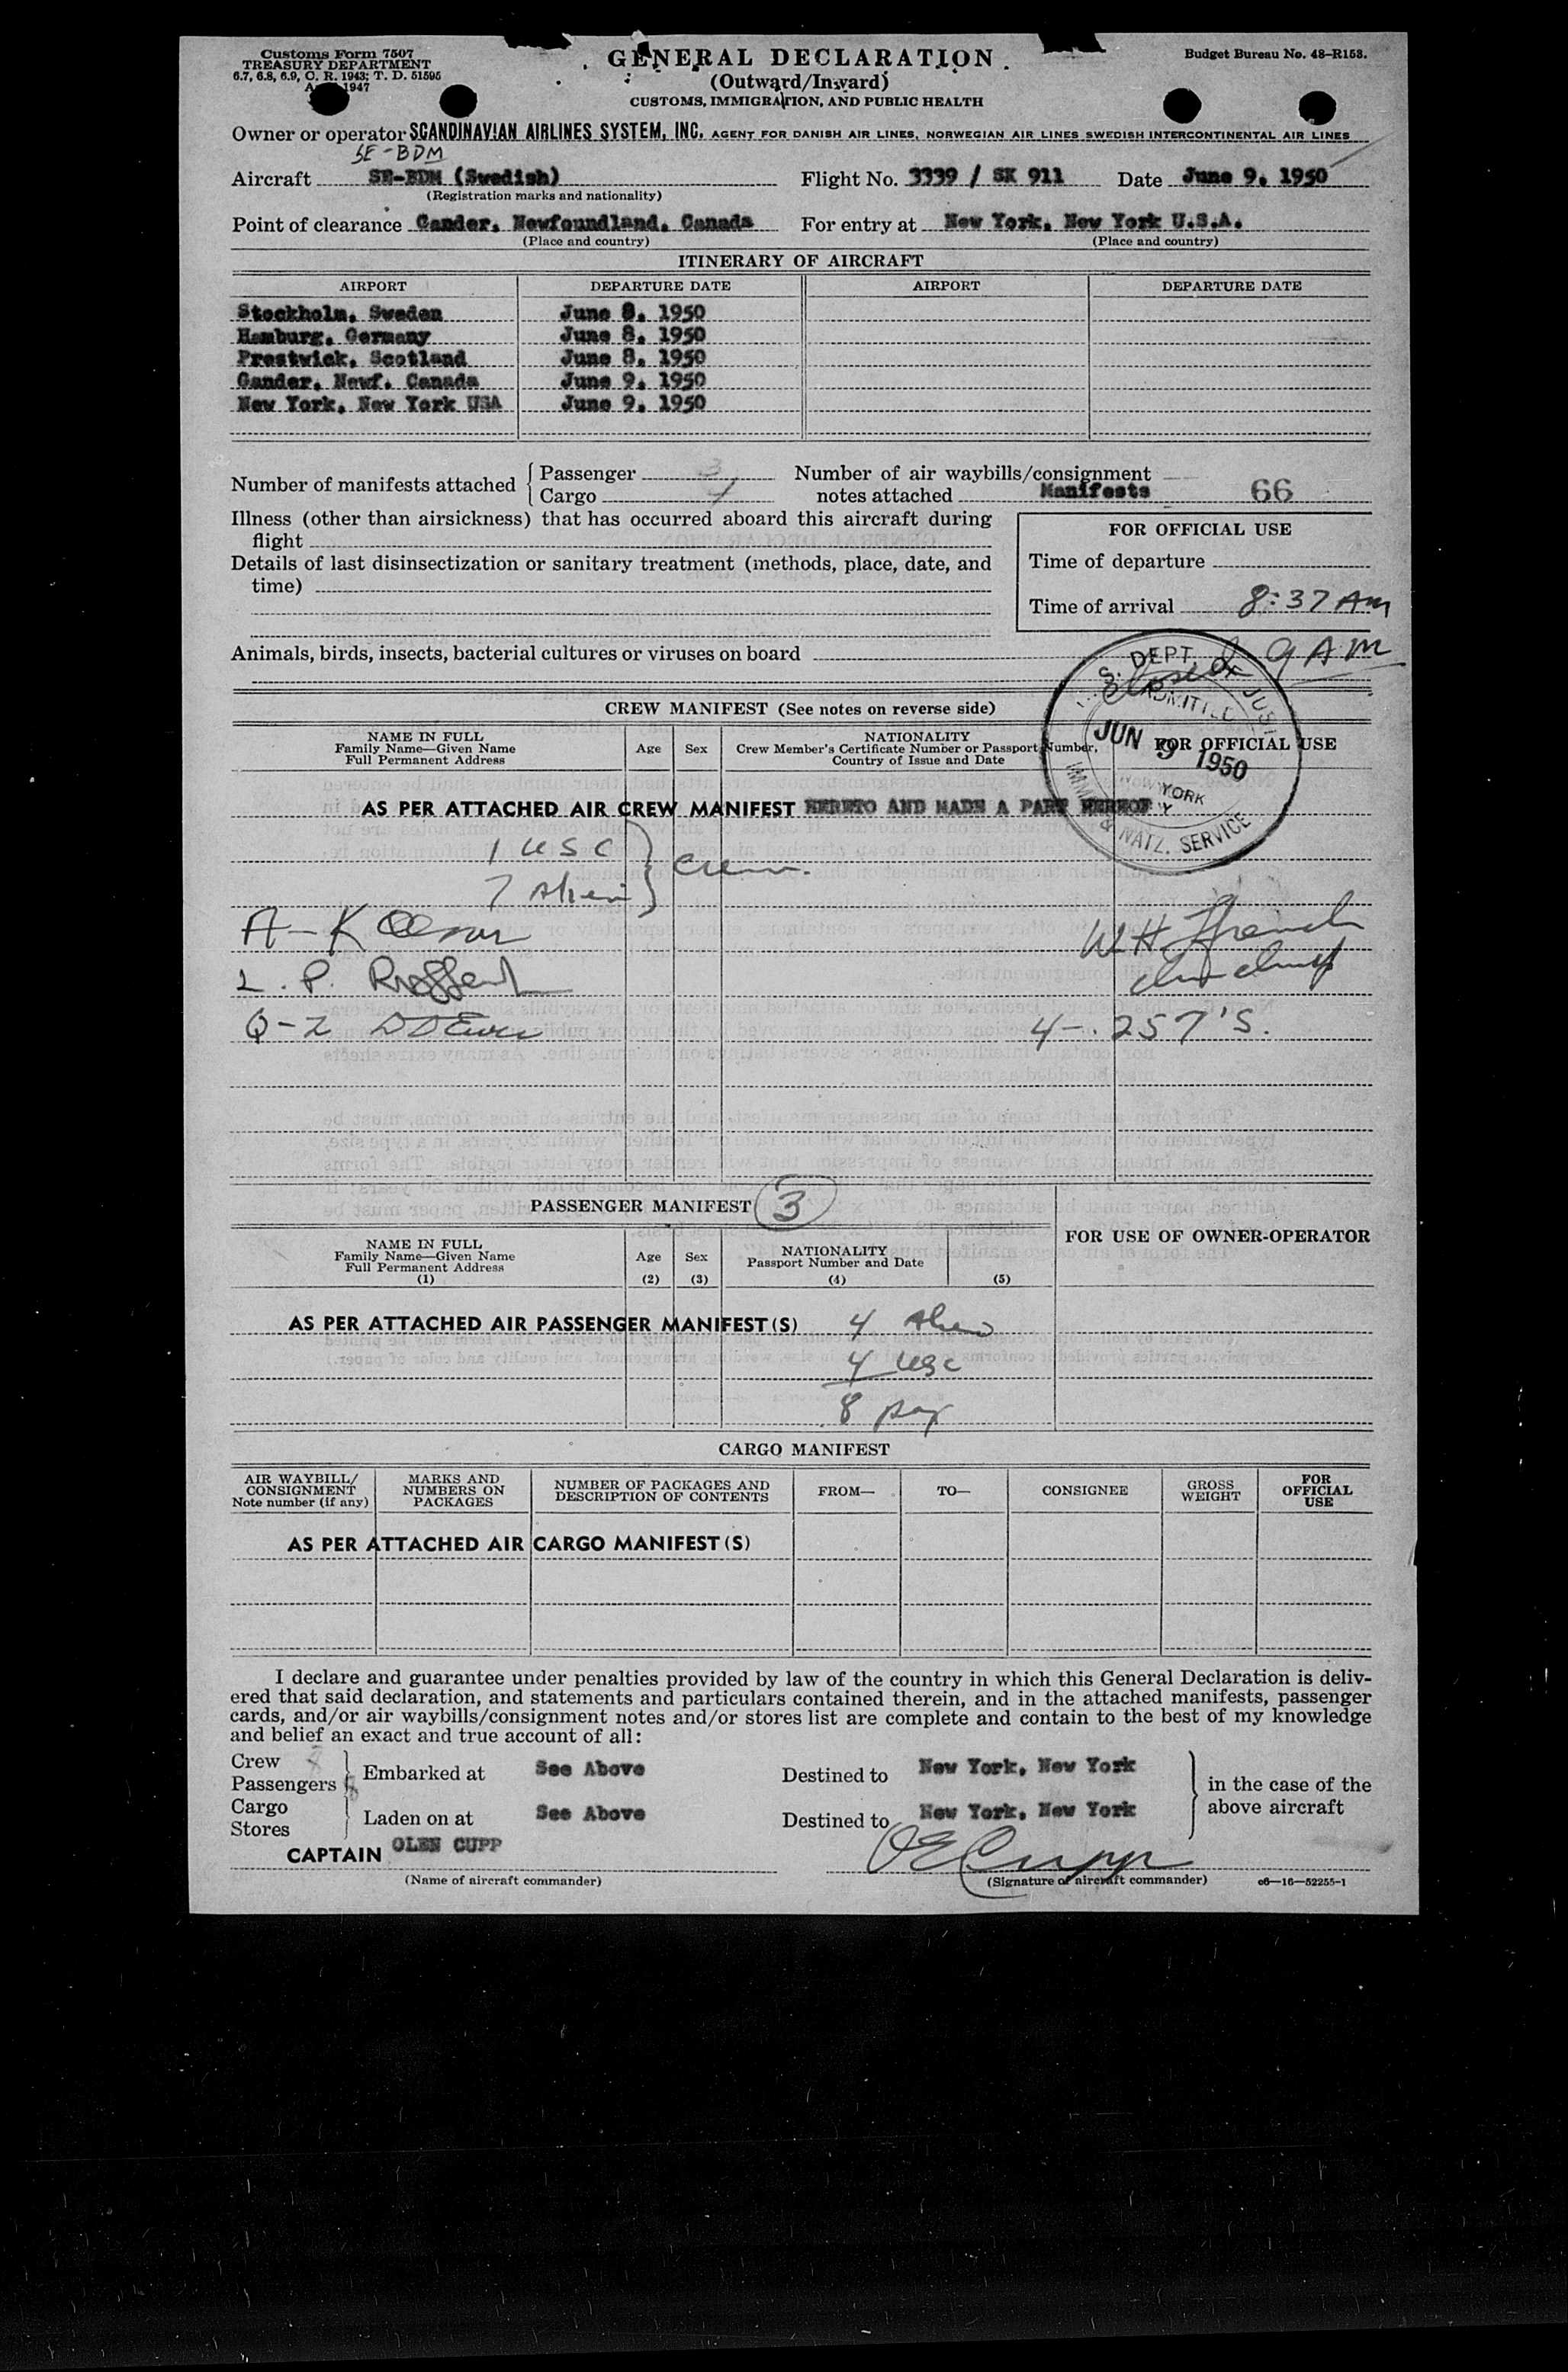 Customs Form 7507
TREASURY DEPARTMENT
6.7, 6.8, 6.9, C. R. 1943; T. D. 51595
1947
GENERAL DECLARATION
(Outward/Inward)
CUSTOMS, IMMIGRATION, AND PUBLIC HEALTH
Budget Bureau No. 48–R153.
Owner or operator SCANDINAVIAN AIRLINES SYSTEM, INC. AGENT FOR DANISH AIR LINES, NORWEGIAN AIR LINES SWEDISH INTERCONTINENTAL AIR LINES
SE-BDM
Aircraft SE-BDM (Swedish) Flight No. 3339 / SK 911 Date June 9, 1950
(Registration marks and nationality)
Point of clearance Gander, Newfoundland, Canada For entry at New York, New York U.S.A.
(Place and country) (Place and country)
ITINERARY OF AIRCRAFT
AIRPORT DEPARTURE DATE AIRPORT DEPARTURE DATE
Stockholm, Sweden June 8, 1950
Hamburg, Germany June 8, 1950
Prestwick, Scotland June 8, 1950
Gander, Newf. Canada June 9, 1950
New York, New York USA June 9, 1950
Number of manifests attached { Passenger 3
Cargo
Number of air waybills/consignment
notes attached Manifests 66
Illness (other than airsickness) that has occurred aboard this aircraft during
flight
Details of last disinsectization or sanitary treatment (methods, place, date, and
time)
FOR OFFICIAL USE
Time of departure
Time of arrival 8:37 AM
Animals, birds, insects, bacterial cultures or viruses on board
closed 9 AM
U. S. DEPT. OF JUST
ADMITTED
JUN 9 1950
NEW YORK
IMM & NATZ. SERVICE
CREW MANIFEST (See notes on reverse side)
NAME IN FULL
Family Name—Given Name
Full Permanent Address
Age Sex
NATIONALITY
Crew Member's Certificate Number or Passport Number,
Country of Issue and Date
FOR OFFICIAL USE
AS PER ATTACHED AIR CREW MANIFEST HERETO AND MADE A PART HEREOF
1 USC
7 Alien } Crew.
A-K
W H
L. P.
Q-Z
4-. 257'S.
PASSENGER MANIFEST 3
NAME IN FULL
Family Name—Given Name
Full Permanent Address
(1)
Age
(2)
Sex
(3)
NATIONALITY
Passport Number and Date
(4)
(5)
FOR USE OF OWNER-OPERATOR
AS PER ATTACHED AIR PASSENGER MANIFEST(S) 4 Alien
4 USC
8 pax
CARGO MANIFEST
AIR WAYBILL/
CONSIGNMENT
Note number (if any)
MARKS AND
NUMBERS ON
PACKAGES
NUMBER OF PACKAGES AND
DESCRIPTION OF CONTENTS
FROM—
TO—
CONSIGNEE
GROSS
WEIGHT
FOR
OFFICIAL
USE
AS PER ATTACHED AIR CARGO MANIFEST(S)
I declare and guarantee under penalties provided by law of the country in which this General Declaration is deliv-
ered that said declaration, and statements and particulars contained therein, and in the attached manifests, passenger
cards, and/or air waybills/consignment notes and/or stores list are complete and contain to the best of my knowledge
and belief an exact and true account of all:
Crew
Passengers
Embarked at See Above Destined to New York, New York
Cargo
Stores
Laden on at See Above Destined to New York, New York
in the case of the
above aircraft
CAPTAIN OLEN CUPP
O E Cupp
(Name of aircraft commander)
(Signature of aircraft commander)
c6—16—52255-1